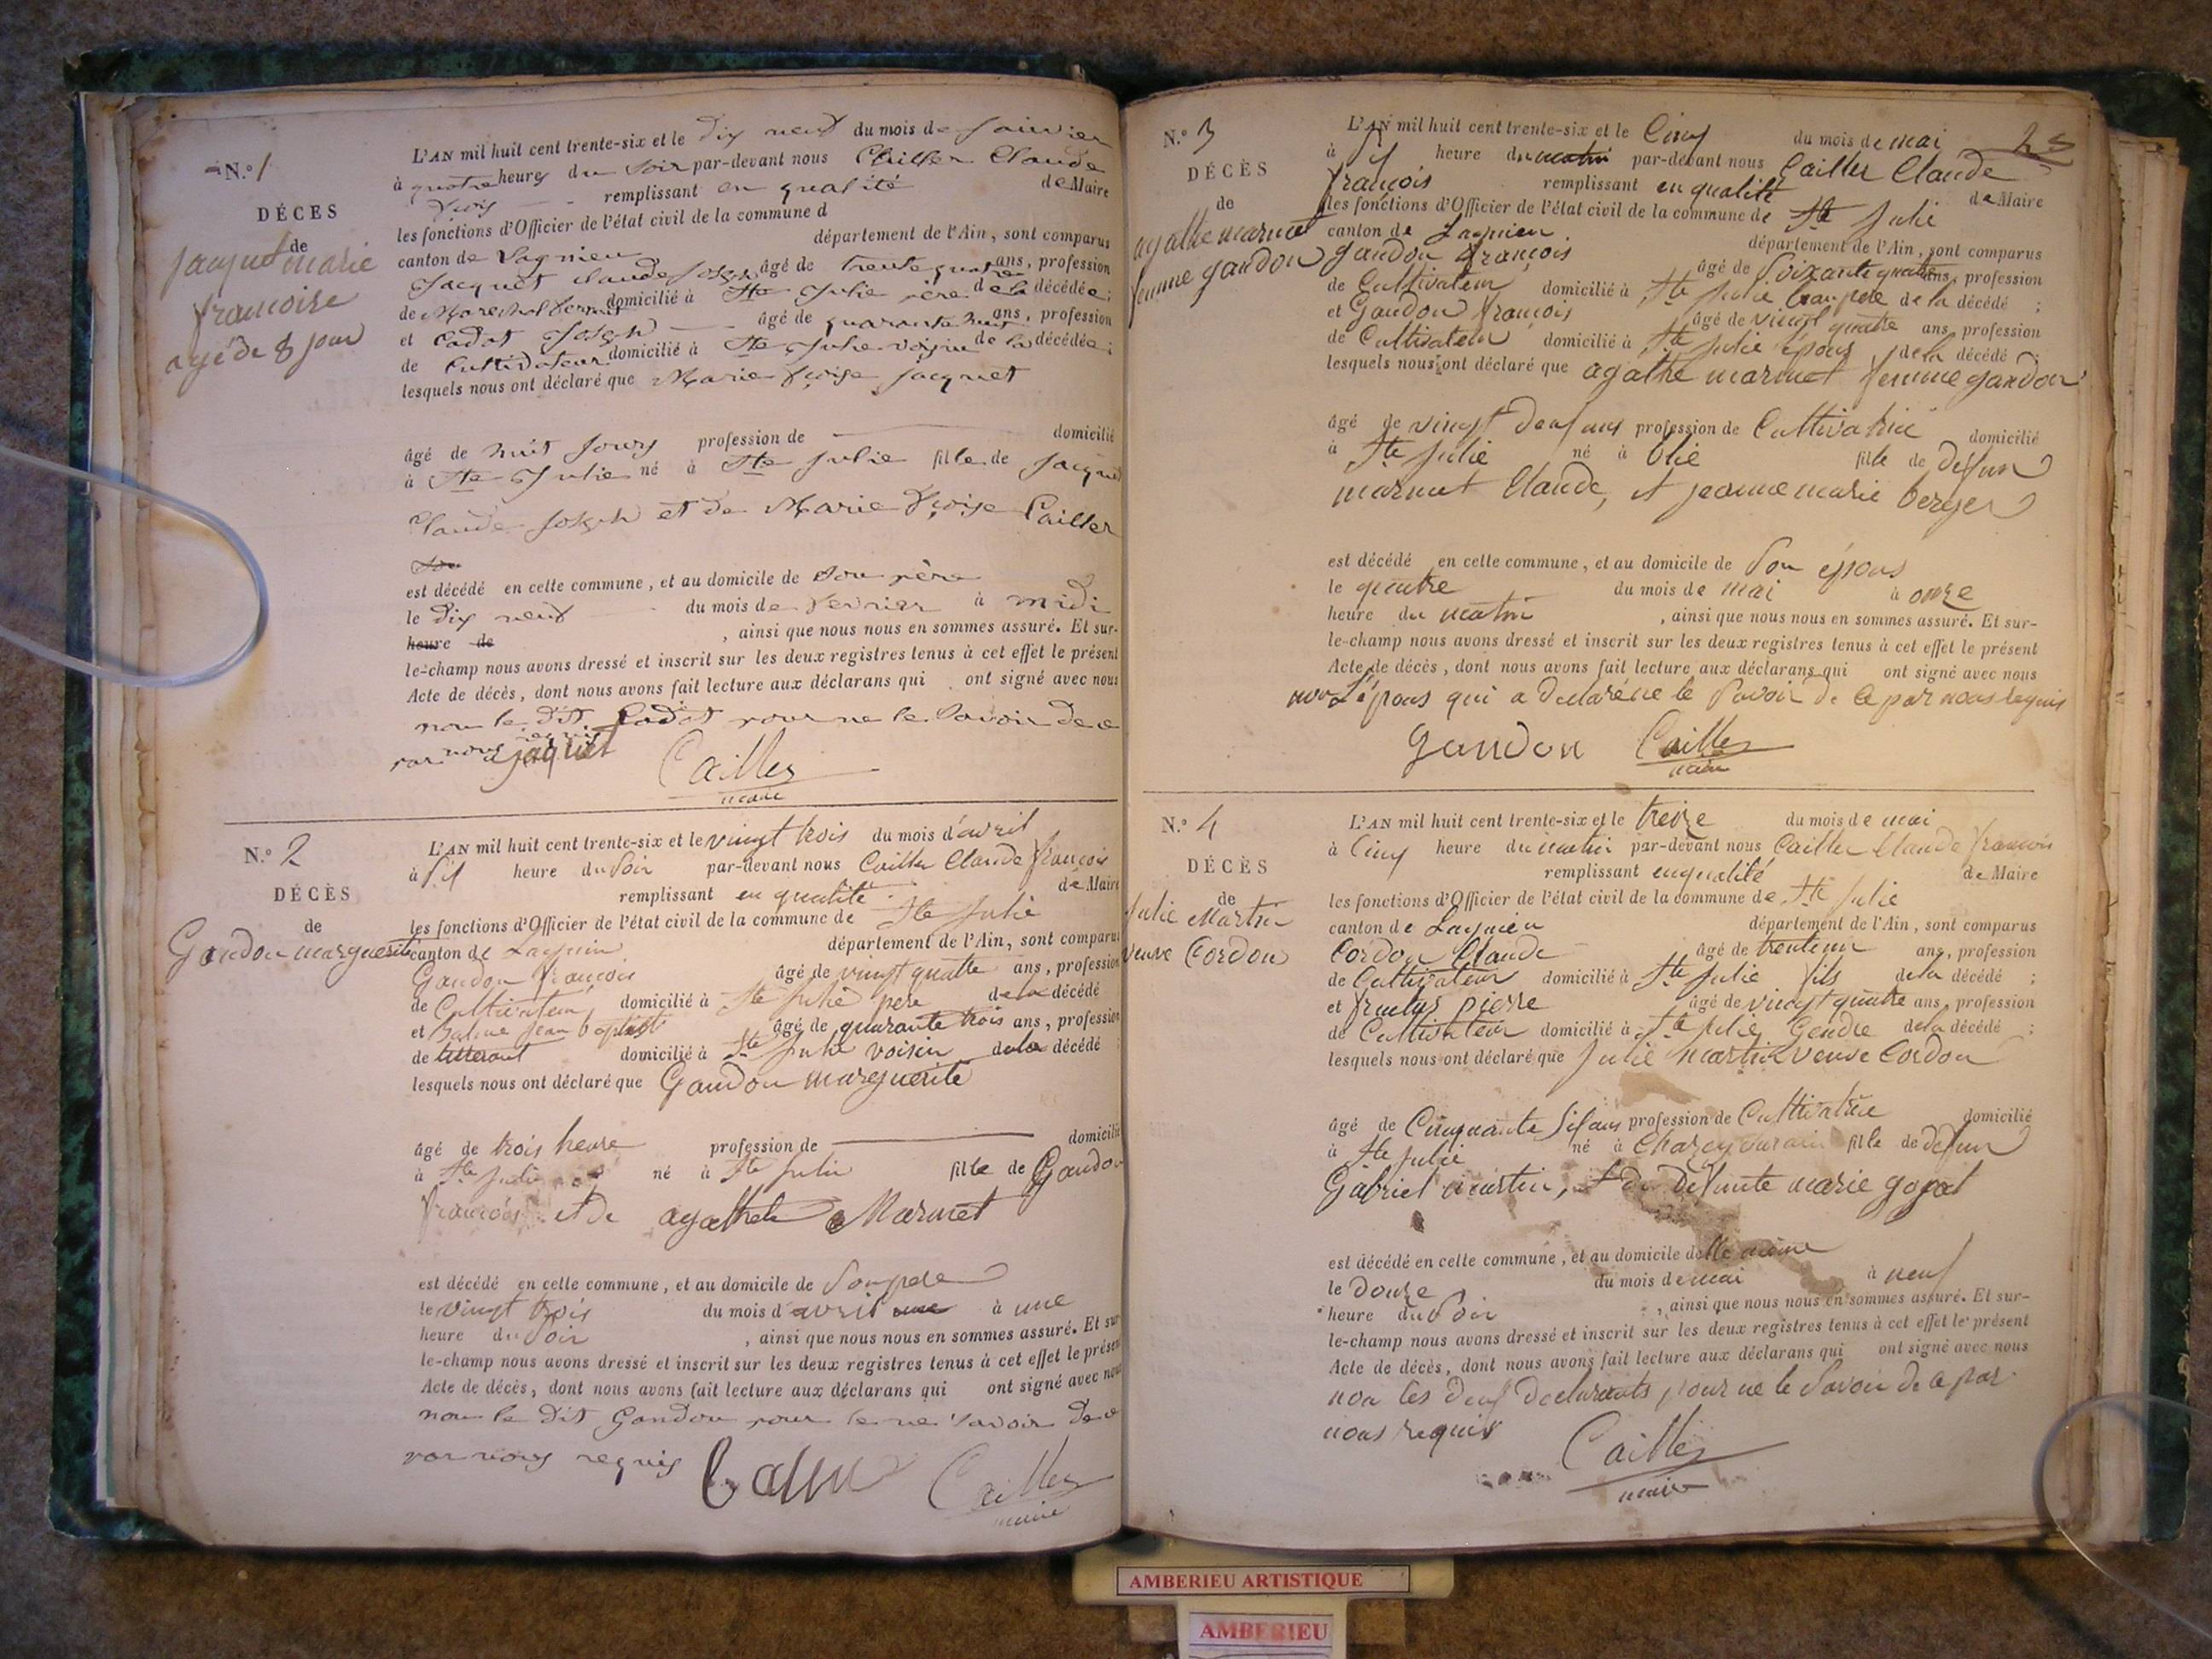 N.º 1
DÉCES
de
Jacquet marie
francoise
agé de 8 jour
L'AN mil huit cent trente-six et le dix neuf du mois de Janvier
à quatre heures du soir par-devant nous Cailler Claude
fçois remplissant en qualité de Maire
les fonctions d'Officier de l'état civil de la commune d
canton de Lagnieu département de l'Ain, sont comparus
Jacquet Claude Joseph âgé de trente quatre ans, profession
de Marechal ferrant domicilié à Ste Julie père de la décédée;
et Cadot Joseph âgé de quarante huit ans, profession
de Cultivateur domicilié à Ste Julie voisin de la décédée;
lesquels nous ont déclaré que Marie fçoise Jacquet
âgé de huit jours profession de domicilié
à Ste Julie né à Ste Julie fille de Jacquet
Claude Joseph et de Marie fçoise Cailler
est décédé en cette commune, et au domicile de son père
le dix neuf du mois de Fevrier à midi
heure de , ainsi que nous nous en sommes assuré. Et sur-
le-champ nous avons dressé et inscrit sur les deux registres tenus à cet effet le présent
Acte de décès, dont nous avons fait lecture aux déclarans qui ont signé avec nous
non le dit Cadot pour ne le Savoir de ce
par nous requis jaquet Cailler
maire
N.º 2
DÉCÈS
de
Gandon marguerite
L'AN mil huit cent trente-six et le vingt trois du mois d'avril
à six heure du Soir par-devant nous Cailler Claude françois
remplissant en qualité de Maire
les fonctions d'Officier de l'état civil de la commune de Ste Julie
canton de Lagnieu département de l'Ain, sont comparus
Gandon françois âgé de vingt quatre ans, profession
de Cultivateur domicilié à Ste Julie pere de la décédé
et Balme jean baptiste âgé de quarante trois ans, profession
de domicilié à Ste Julie voisin de la décédé
lesquels nous ont déclaré que Gandon marguerite
âgé de trois heure profession de domicilié
à Ste Julie né à Ste Julie fille de Gandon
françois et de agathe Marmet
est décédé en cette commune, et au domicile de Son pere
le vingt trois du mois d'avril une à une
heure du Soir , ainsi que nous nous en sommes assuré. Et sur
le-champ nous avons dressé et inscrit sur les deux registres tenus à cet effet le présent
Acte de décès, dont nous avons fait lecture aux déclarans qui ont signé avec nous
non le dit Gandon pour le ne savoir de ce
par nous requis Balme Cailler
maire
N.º 3
DÉCÈS
de
agathe marmet
femme gandon
L'AN mil huit cent trente-six et le Cinq du mois de mai 23
à six heure du matin par-devant nous Cailler Claude
françois remplissant en qualité de Maire
les fonctions d'Officier de l'état civil de la commune de Ste Julie
canton de Lagnieu département de l'Ain, sont comparus
gandon françois âgé de Soixante quatre ans, profession
de Cultivateur domicilié à Ste Julie beaupere de la décédé ;
et Gandon françois âgé de vingt quatre ans, profession
de Cultivateur domicilié à Ste Julie époux de la décédé ;
lesquels nous ont déclaré que agathe marmet femme gandon
âgé de vingt deux ans profession de Cultivatrice domicilié
à Ste Julie né à blie fille de defun
marmet Claude, et jeanne marie berger
est décédé en cette commune, et au domicile de Son époux
le quatre du mois de mai à onze
heure du matin , ainsi que nous nous en sommes assuré. Et sur-
le-champ nous avons dressé et inscrit sur les deux registres tenus à cet effet le présent
Acte de décès, dont nous avons fait lecture aux déclarans qui ont signé avec nous
non L'époux qui a declaré ne le Savoir de ce par nous requis
Gandon Cailler
maire
N.º 4
DÉCÈS
de
Julie Martin
veuve Cordon
L'AN mil huit cent trente-six et le treize du mois de mai
à Cinq heure du matin par-devant nous Cailler Claude françois
remplissant en qualité de Maire
les fonctions d'Officier de l'état civil de la commune de Ste Julie
canton de Lagnieu département de l'Ain, sont comparus
Cordon Claude âgé de trente un ans, profession
de Cultivateur domicilié à Ste Julie fils de la décédé ;
et pierre âgé de vingt quatre ans, profession
de Cultivateur domicilié à Ste Julie Gendre de la décédé ;
lesquels nous ont déclaré que Julie martin veuve Cordon
âgé de Cinquante Six ans profession de Cultivatrice domicilié
à Ste Julie né à fille de defun
Gabriel martin, et de Defunte marie goyat
est décédé en cette commune, et au domicile d'elle même
le Douze du mois de mai à neuf
heure du Soir , ainsi que nous nous en sommes assuré. Et sur-
le-champ nous avons dressé et inscrit sur les deux registres tenus à cet effet le présent
Acte de décès, dont nous avons fait lecture aux déclarans qui ont signé avec nous
non les deux declarants pour ne le Savoir de ce par
nous requis Cailler
maire
AMBERIEU ARTISTIQUE
AMBERIEU